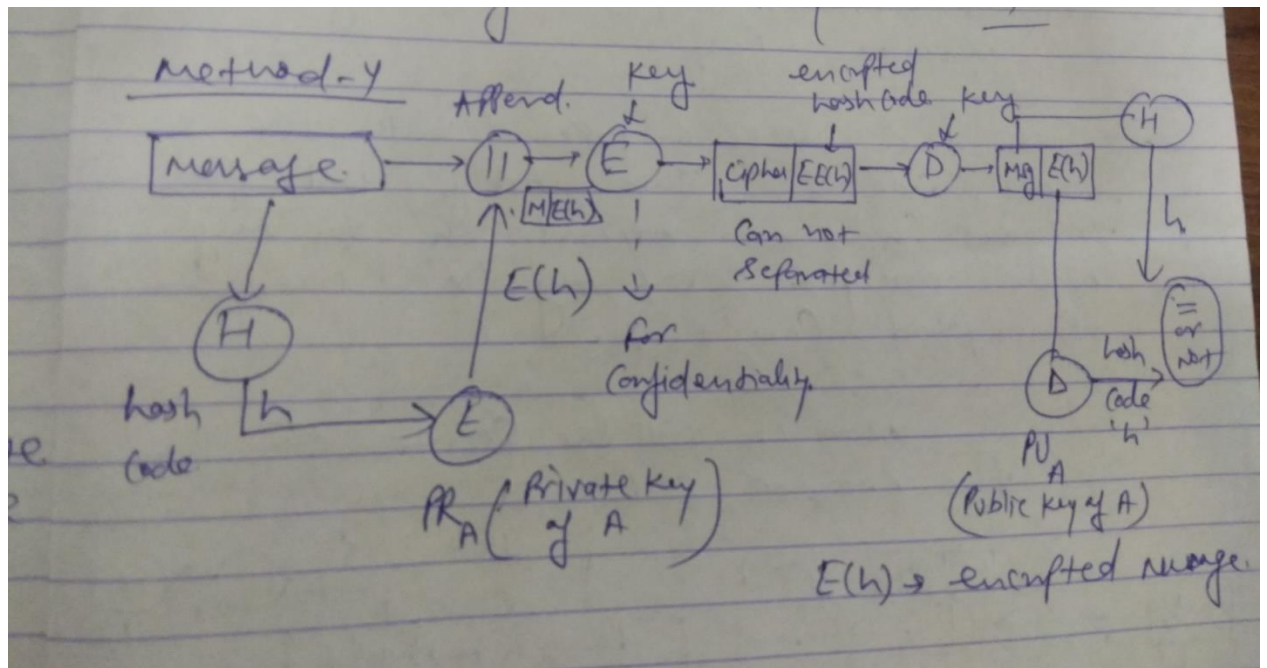 Method-4
Append. Key encrypted
hashcode Key
Message. || E Cipher EE(h) D Msg E(h) H
M E(h)
Can not
Separated
E(h)
h
H
For
Confidentiality.
= or not
hash
code
h
E
D
hash
code
'h'
PR A (Private Key
of A)
PU A
(Public Key of A)
E(h) → encrypted